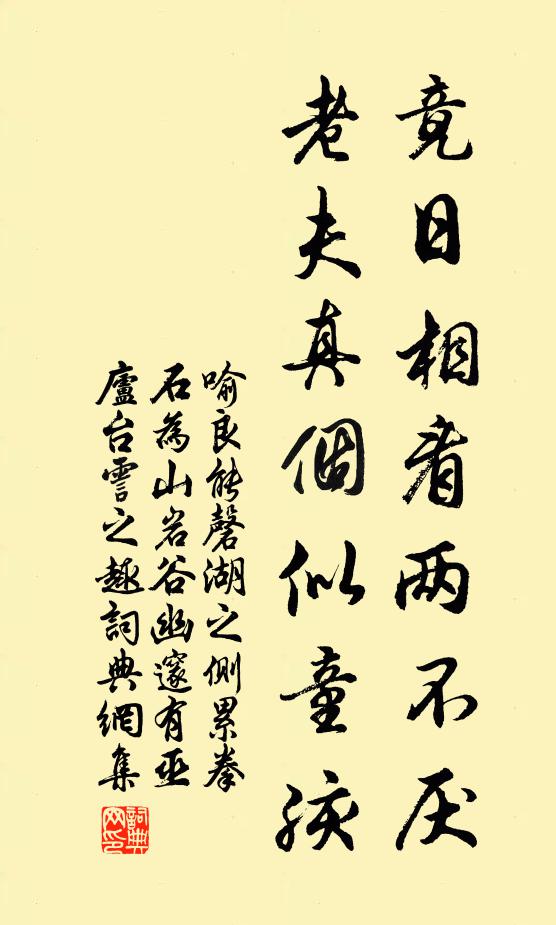 竟日相看两不厌
老夫真個似童孩
喻良能磬湖之側累拳
石為山岩谷幽邃有亚
廬台雪之趣詞典網集
詞典网印